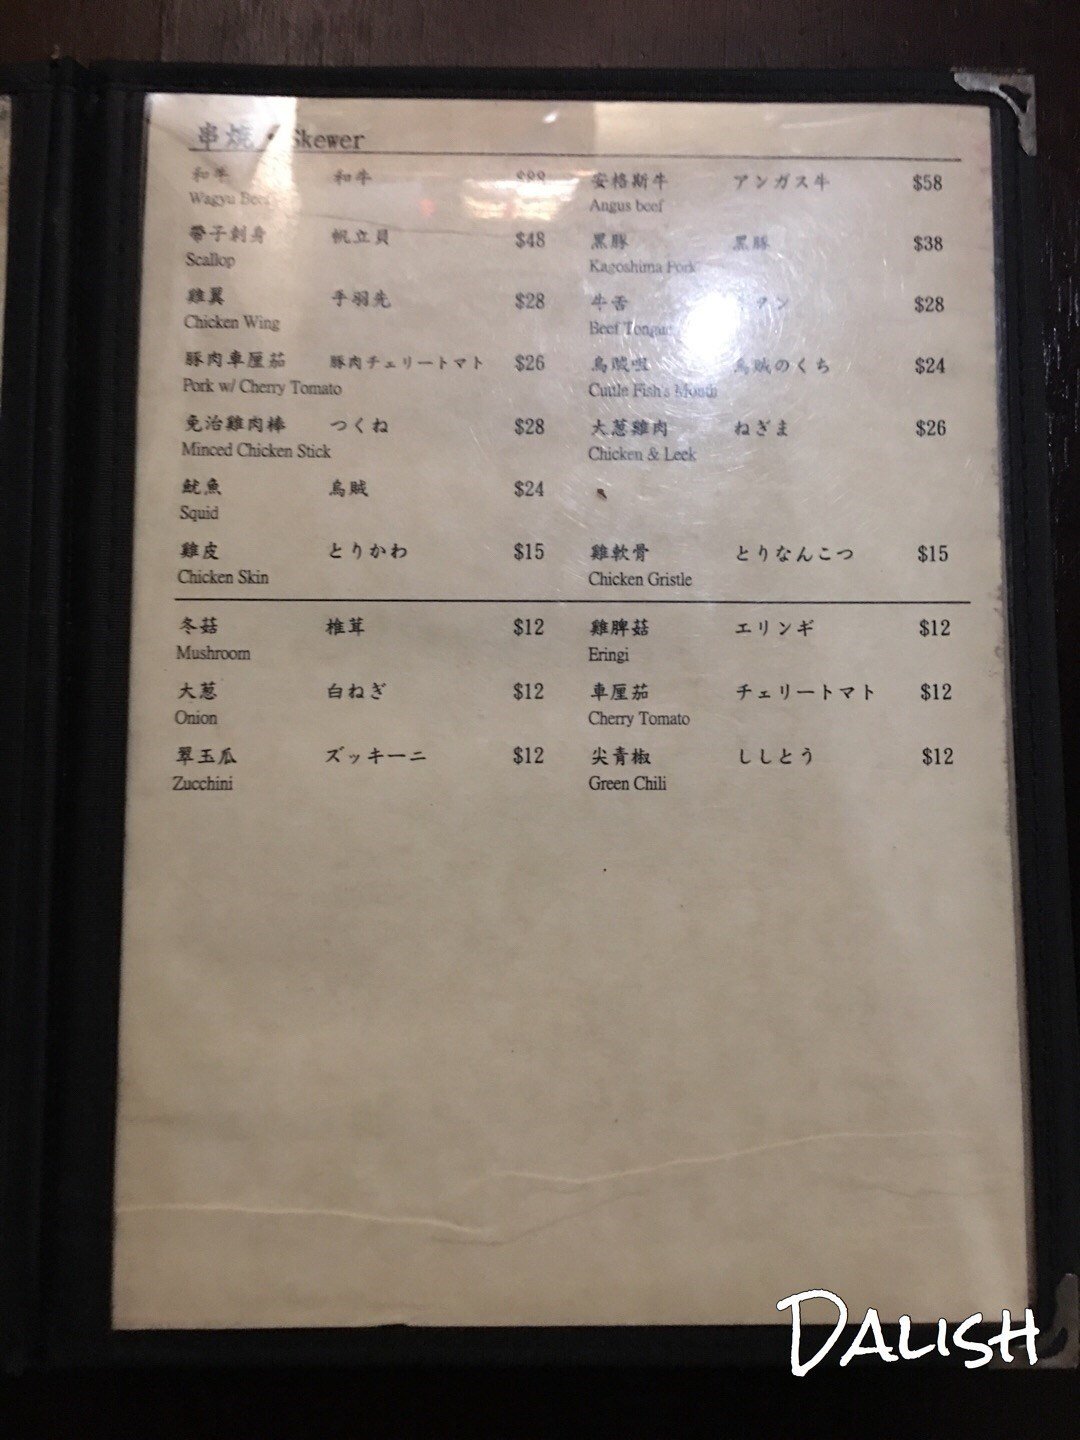 串燒 · Skewer
和牛 和牛 $88 安格斯牛 アンガス牛 $58
Wagyu Beef Angus beef
帶子刺身 帆立貝 $48 黑豚 黒豚 $38
Scallop Kagoshima Pork
雞翼 手羽先 $28 牛舌 タン $28
Chicken Wing Beef Tongue
豚肉車厘茄 豚肉チェリートマト $26 烏賊咀 烏賊のくち $24
Pork w/ Cherry Tomato Cuttle Fish's Mouth
免治雞肉棒 つくね $28 大葱雞肉 ねぎま $26
Minced Chicken Stick Chicken & Leek
魷魚 烏賊 $24
Squid
雞皮 とりかわ $15 雞軟骨 とりなんこつ $15
Chicken Skin Chicken Gristle
冬菇 椎茸 $12 雞脾菇 エリンギ $12
Mushroom Eringi
大葱 白ねぎ $12 車厘茄 チェリートマト $12
Onion Cherry Tomato
翠玉瓜 ズッキーニ $12 尖青椒 ししとう $12
Zucchini Green Chili
DALISH